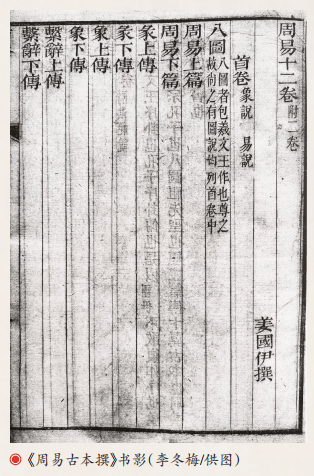 周易十二卷 附二卷
首卷 象說 易說
姜國伊撰
八圖 八圖者包羲文王作也尊之
故尚之有圖說均列首卷中
周易上篇
周易下篇
彖上傳
彖下傳
象上傳
象下傳
繫辭上傳
繫辭下傳
《周易古本撰》书影(李冬梅/供图)